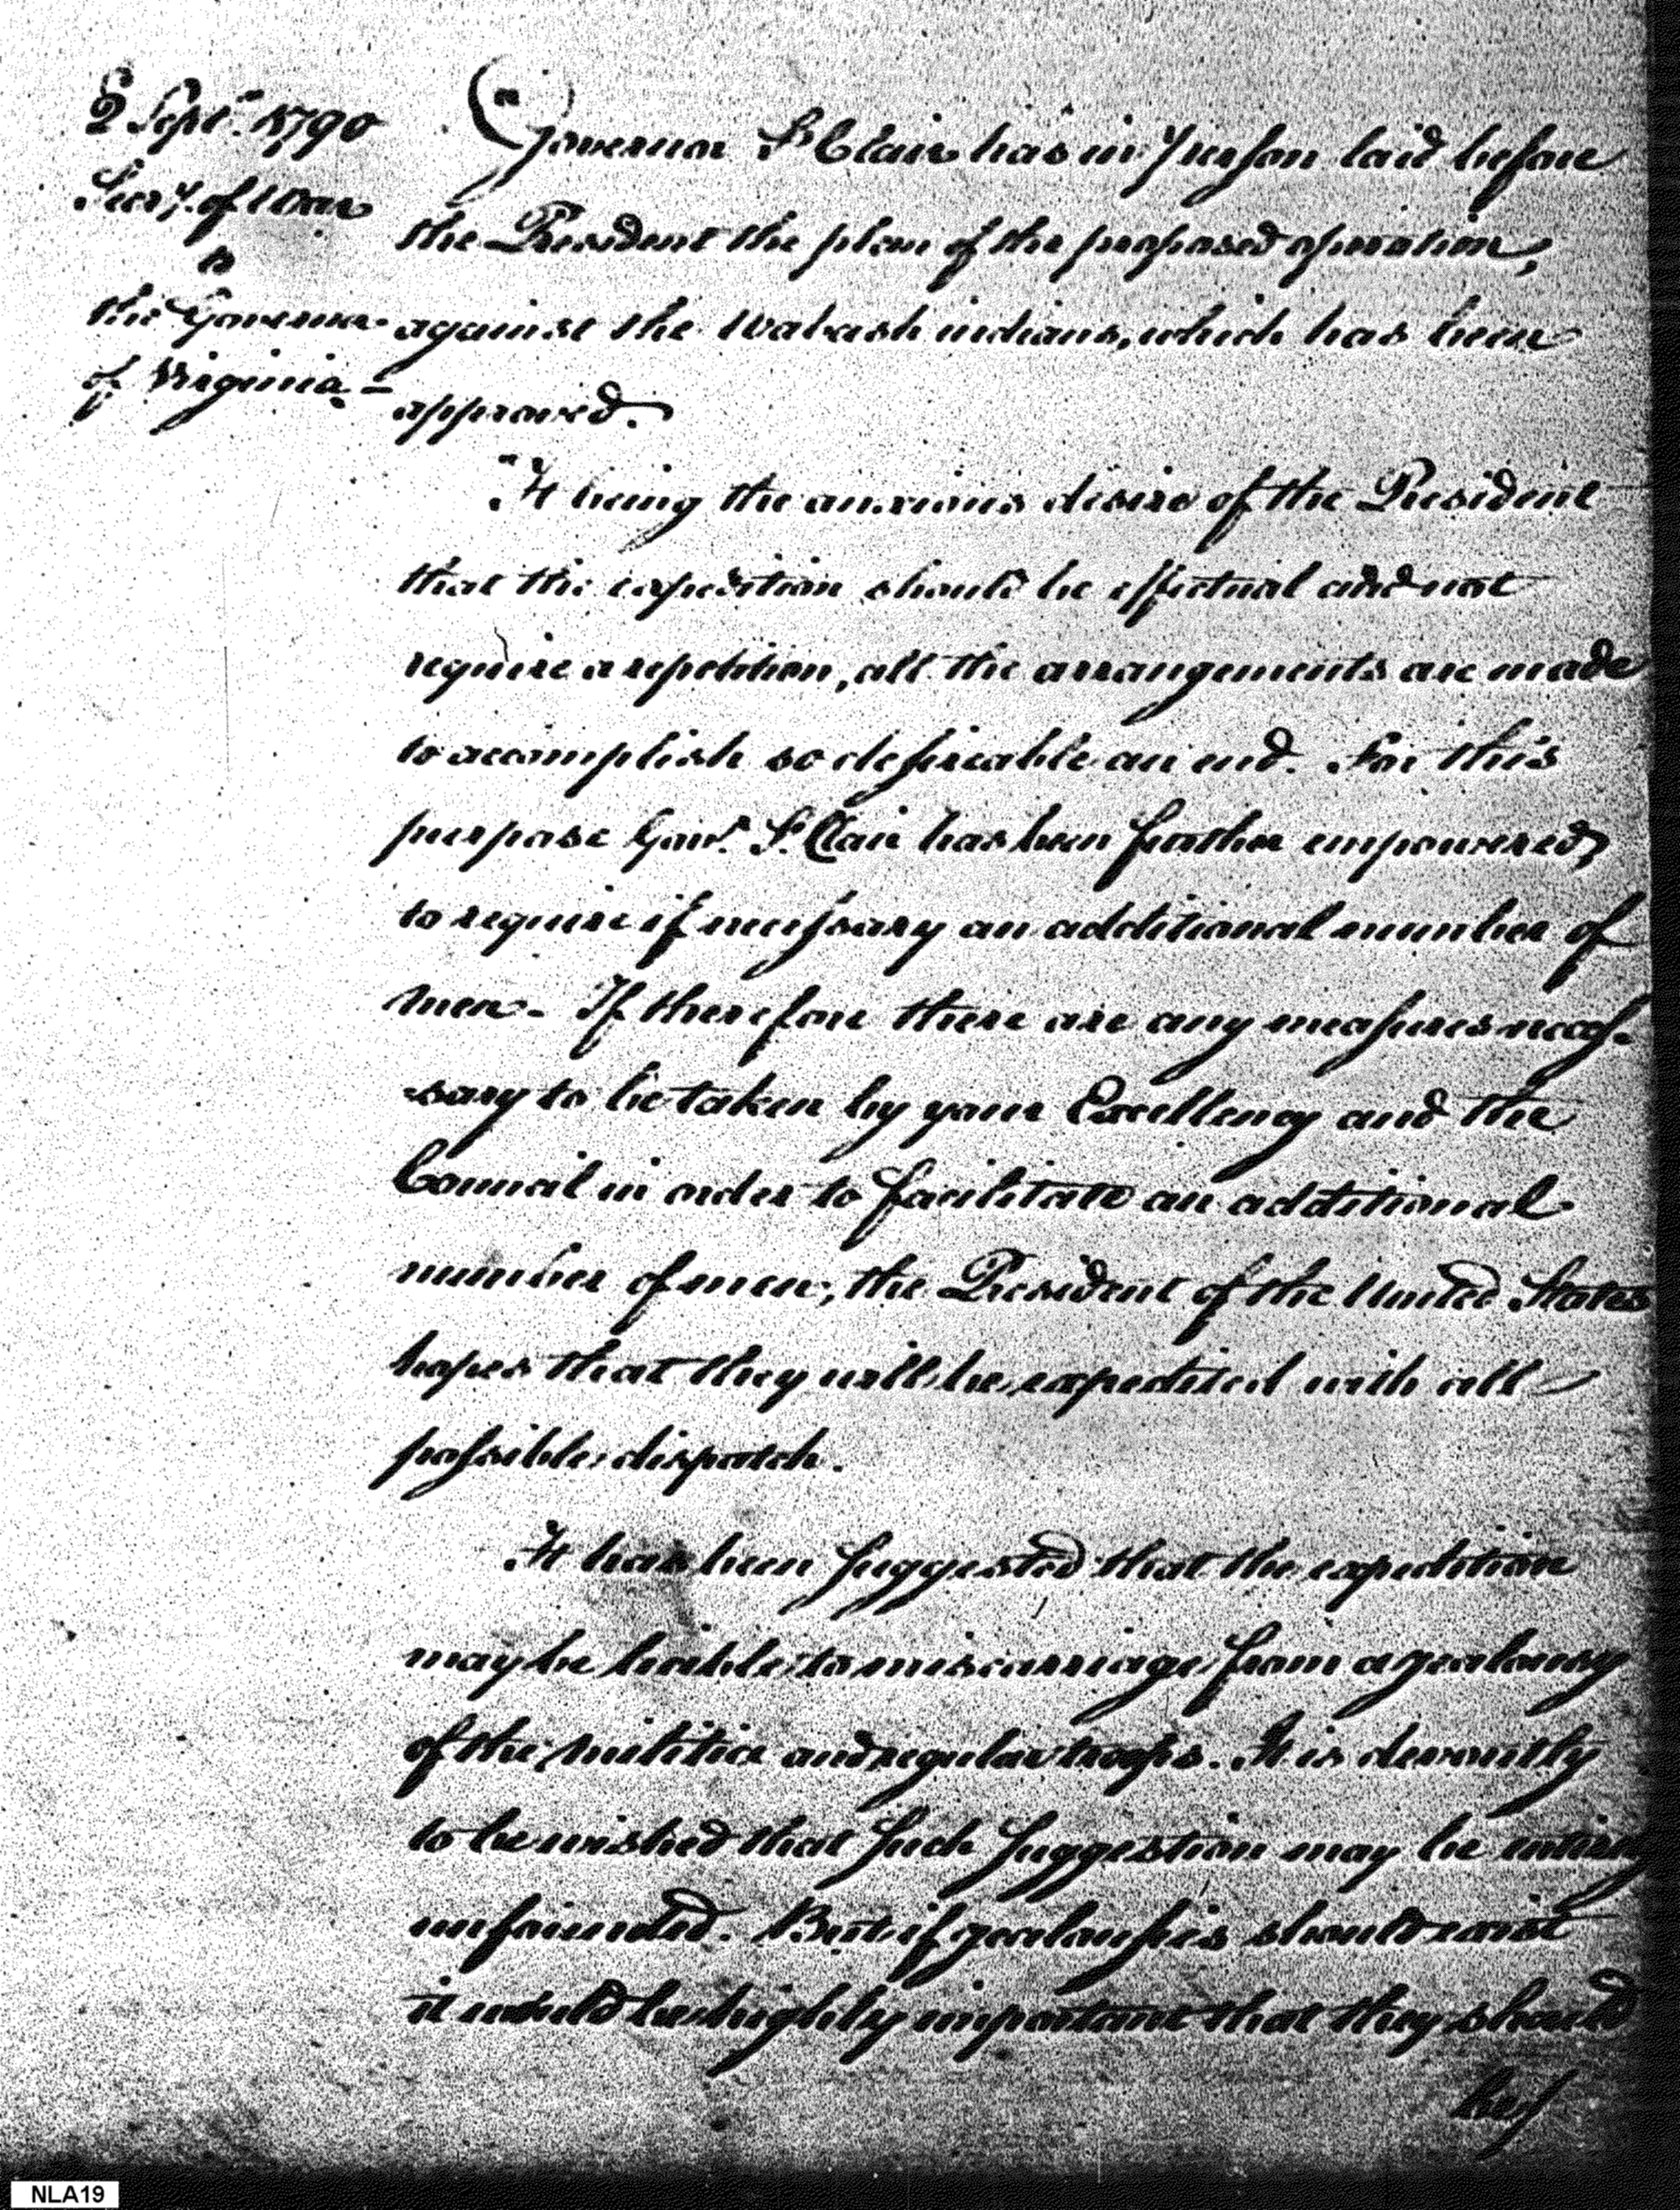 2 Sept. 1790
Secy. of War
to
the Governor
of Virginia. -
"Governor St Clair has in person laid before
the President the plan of the proposed operation,
against the Wabash indians, which has been
approved.
"It being the anxious desire of the President
that the expedition should be effectual and not
require a repetition, all the arrangements are made
to accomplish so desireable an end. For this
purpose Govr. St. Clair has been further empowered,
to require if necessary an additional number of
men - If therefore there are any measures neces-
sary to be taken by your Excellency and the
Council in order to facilitate an additional
number of men, the President of the United States
hopes that they will be expedited with all
possible dispatch.
It has been suggested that the expedition
may be liable to miscarriage from a jealousy
of the militia and regular troops. It is devoutly
to be wished that such suggestion may be entirely
unfounded. But if jealousies should exist
it would be highly important that they should
be
NLA19